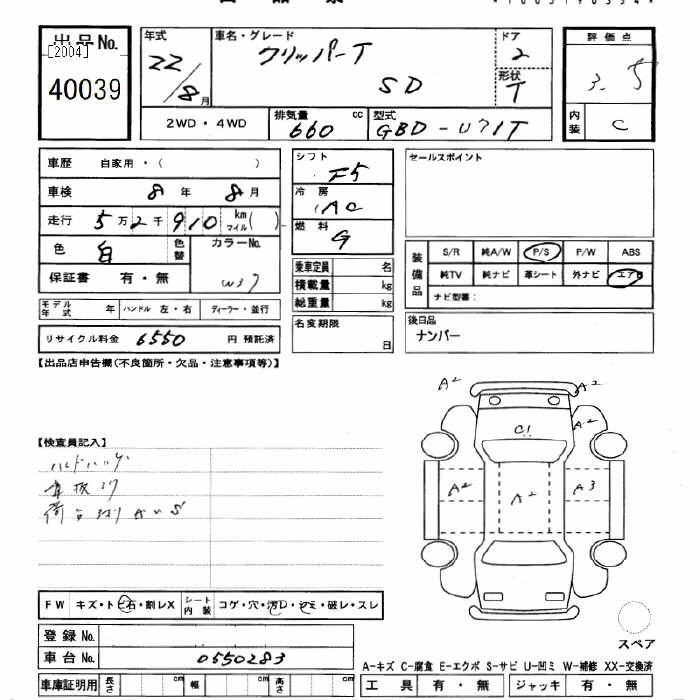 出品No.
[2004]
40039
年式
22/8月
車名・グレード
クリッパーT
SD
ドア
2
形状
T
評価点
3.5
内装
C
2WD・4WD
排気量
660 cc
型式
GBD-U71T
車歴 自家用・( )
車検 8年8月
走行 5万2千910 km マイル( )
色 白 色替
カラーNo.
W37
保証書 有・無
モデル年式 年 ハンドル 左・右 ディーラー・並行
リサイクル料金 6550 円 預託済
シフト
F5
冷房
AC
燃料
G
乗車定員 名
積載量 kg
総重量 kg
名変期限
日
セールスポイント
装備品
S/R 純A/W P/S P/W ABS
純TV 純ナビ 革シート 外ナビ エアB
ナビ型番:
後日品
ナンバー
【出品店申告欄(不良箇所・欠品・注意事項等)】
【検査員記入】
A2
A2
A2
C1
A2
A2
A3
FW キズ・トビ石・割レX
シート内装 コゲ・穴・汚レ・シミ・破レ・スレ
登録No.
車台No. 0550283
スペア
A-キズ C-腐食 E-エクボ S-サビ U-凹ミ W-補修 XX-交換済
車庫証明用 長さ cm 幅 cm 高さ cm
工具 有・無 ジャッキ 有・無